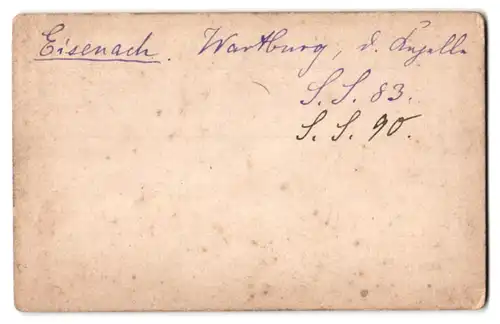 Eisenach. Wartburg, d. Kapelle
S. S. 83.
S. S. 90.